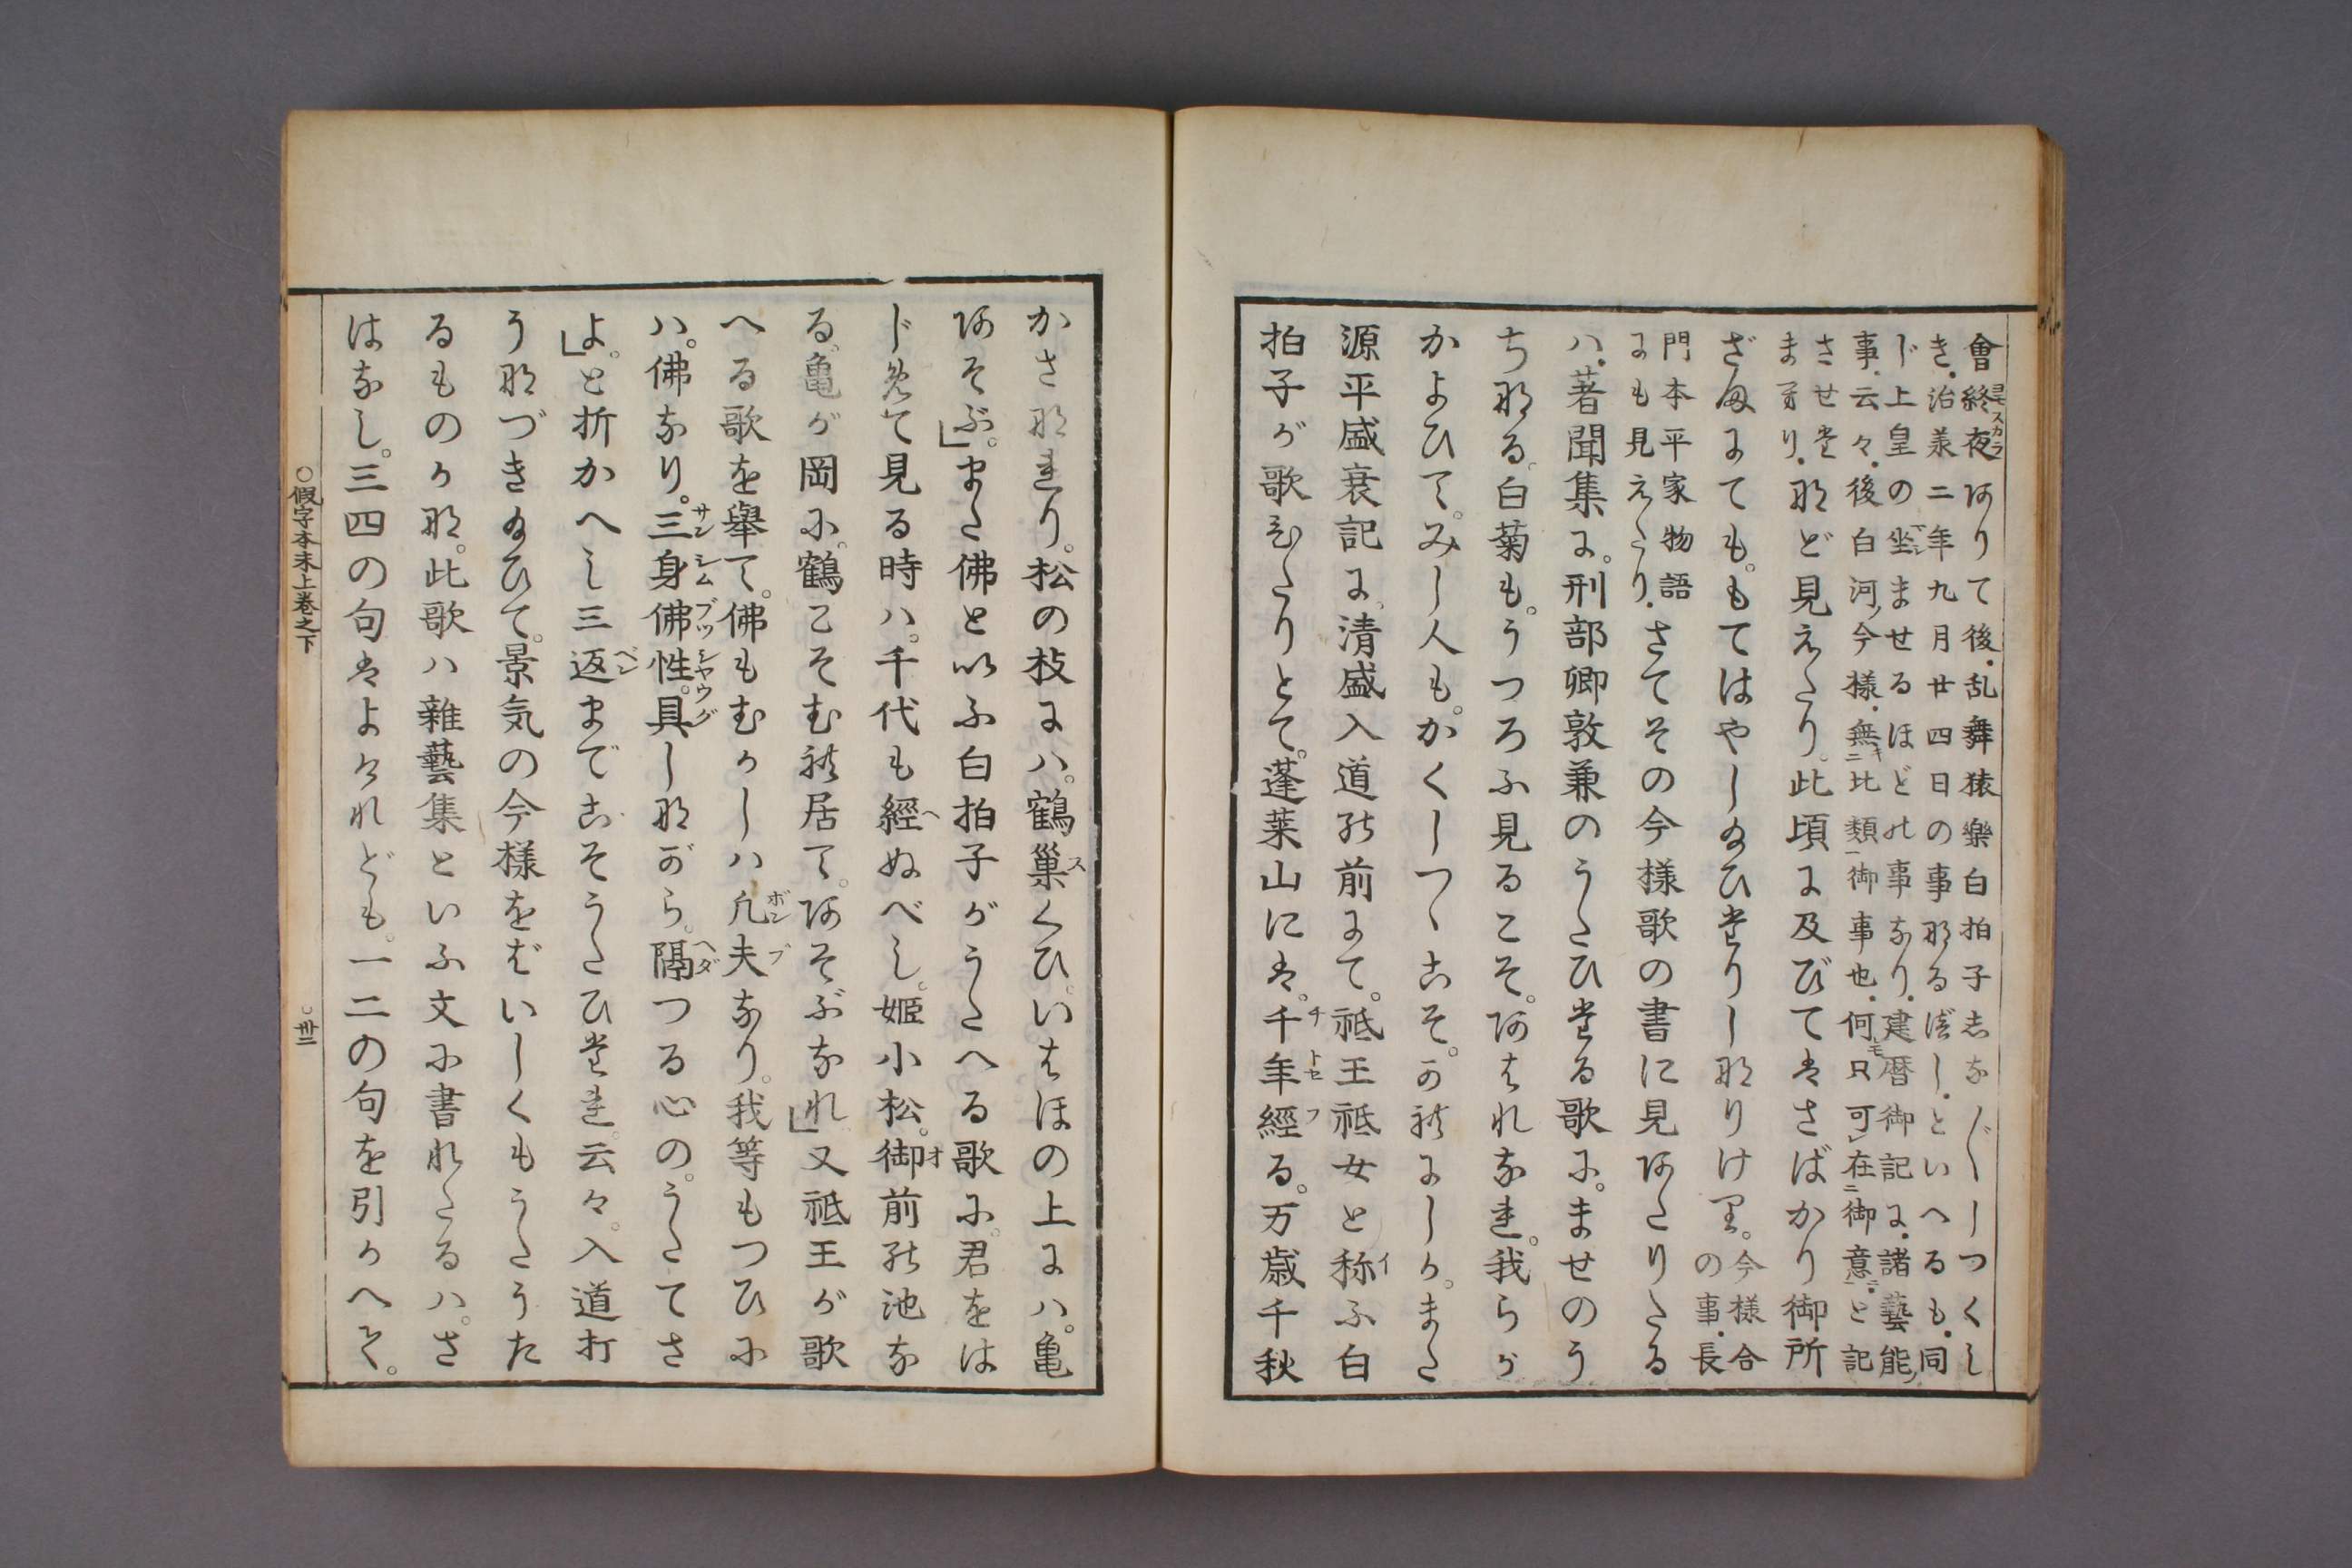 會終夜ありて後、乱舞猿樂白拍子志な〴〵しつくし
き、治義二年九月廿四日の事なるべし、といへるも、同
じ上皇の坐ませるほどの事なり、建暦御記に、諸藝能
事、云々、後白河、今様、無比類御事也、何只可在御意と記
させた
まへり、など見えたり。此頃に及びてはさばかり御所
ざまにても。もてはやし給ひたりしなりけり。今様合
の事、長
門本平家物語
にも見えたり、さてその今様歌の書に見あたりたる
ハ、著聞集に。刑部卿敦兼のうたひたる歌に。ませのう
ちなる。白菊も。うつろふ見るこそ。あはれなれ。我らが
かよひて。みし人も。かくしつゝこそ。かれにしか。また
源平盛衰記に、清盛入道の前にて。祗王祗女と称ふ白
拍子が歌ひたりとて。蓬莱山には。千年經る。万歳千秋
かさなれり。松の枝にハ。鶴巣くひ。いはほの上にハ。亀
あそぶ。」また佛といふ白拍子がうたへる歌に。君をは
じめて見る時ハ。千代も經ぬべし。姫小松。御前の池な
る。亀が岡に。鶴こそむれ居て。あそぶなれ」又祗王が歌
へる歌を舉て。佛もむかしハ凡夫なり。我等もつひに
ハ。佛なり。三身佛性。具しながら。隔つる心の。うたてさ
よ。」と折かへし三返までこそうたひたれ。云々。入道打
うなづき給ひて。景気の今様をばいしくもうたうた
るものかな。此歌ハ雜藝集といふ文に書れたるハ。さ
はなし。三四の句はよけれども。一二の句を引かへて。
○假字本末上巻之下
○卅二